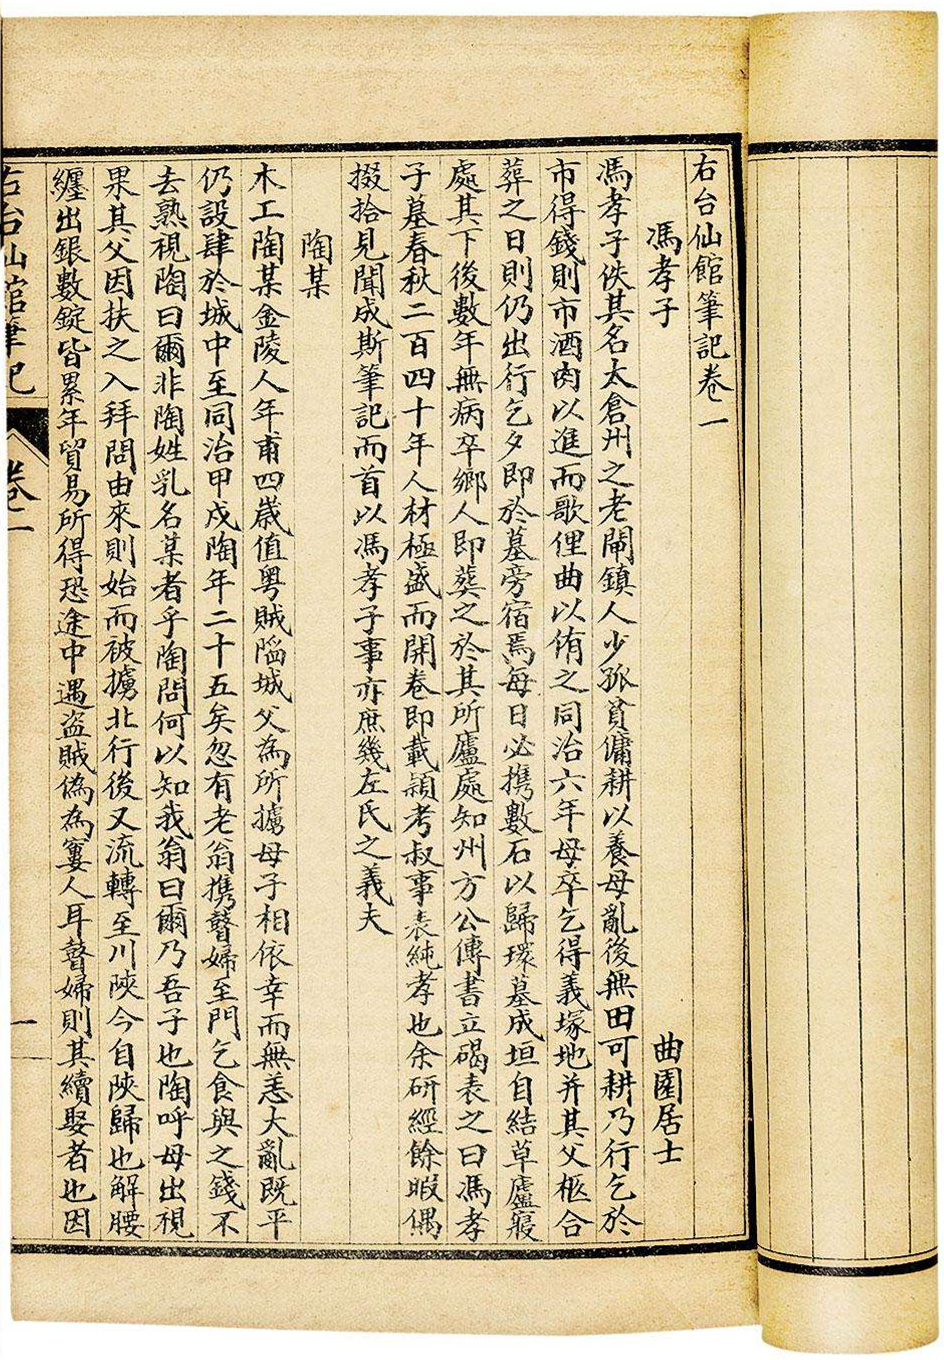 右台仙館筆記卷一
馮孝子
曲園居士
馮孝子佚其名太倉州之老閘鎮人少孤貧傭耕以養母亂後無田可耕乃行乞於
市得錢則市酒肉以進而歌俚曲以侑之同治六年母卒乞得義塚地并其父柩合
葬之日則仍出行乞夕即於墓旁宿焉每日必携數石以歸環墓成垣自結草廬寢
處其下後數年無病卒鄉人即葬之於其所廬處知州方公傳書立碣表之曰馮孝
子墓春秋二百四十年人材極盛而開卷即載潁考叔事表純孝也余研經餘暇偶
掇拾見聞成斯筆記而首以馮孝子事亦庶幾左氏之義夫
陶某
木工陶某金陵人年甫四歲值粵賊陷城父為所擄母子相依幸而無恙大亂既平
仍設肆於城中至同治甲戌陶年二十五矣忽有老翁携瞽婦至門乞食與之錢不
去熟視陶曰爾非陶姓乳名某者乎陶問何以知我翁曰爾乃吾子也陶呼母出視
果其父因扶之入拜問由來則始而被擄北行後又流轉至川陝今自陝歸也解腰
纏出銀數錠皆累年貿易所得恐途中遇盜賊偽為窶人耳瞽婦則其續娶者也因
右台仙館筆記
卷一
一